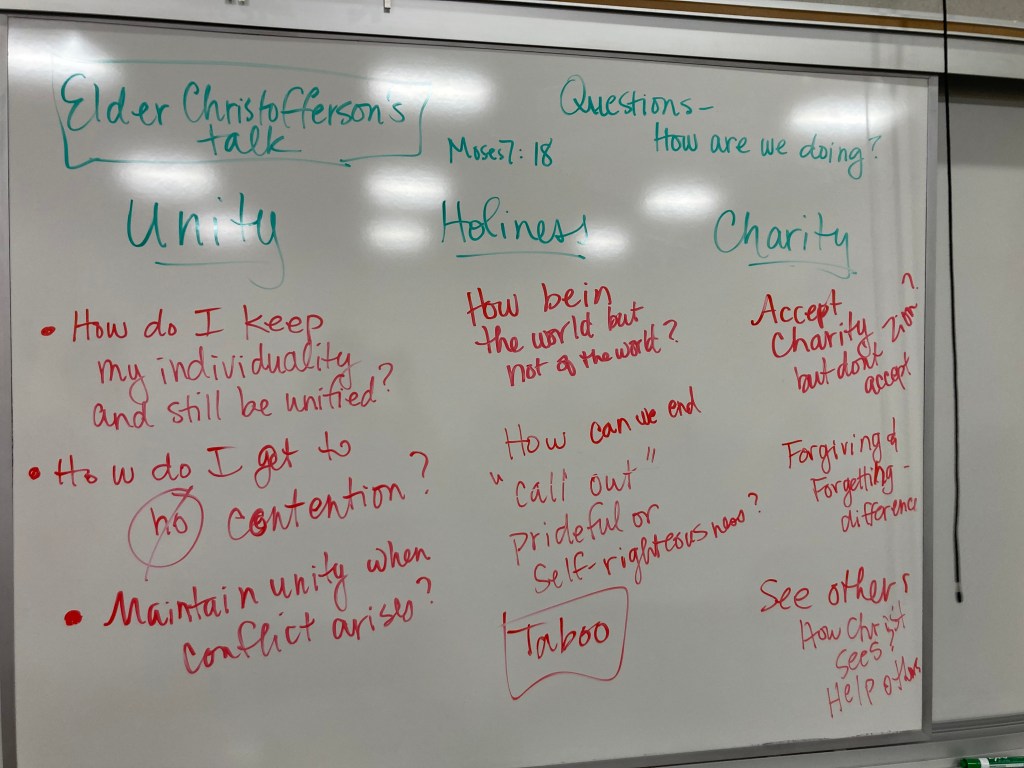 Elder Christofferson's
talk
Moses 7:18
Questions-
How are we doing?
Unity
• How do I keep
my individuality
and still be unified?
• How do I get to
no contention?
• Maintain unity when
conflict arises?
Holiness
How be in
the world but
not of the world?
How can we end
"call out"
prideful or
Self-righteousness?
Taboo
Charity
Accept
Charity
but don't
accept
Zion?
Forgiving &
Forgetting -
difference
See others
How Christ
sees?
Help others